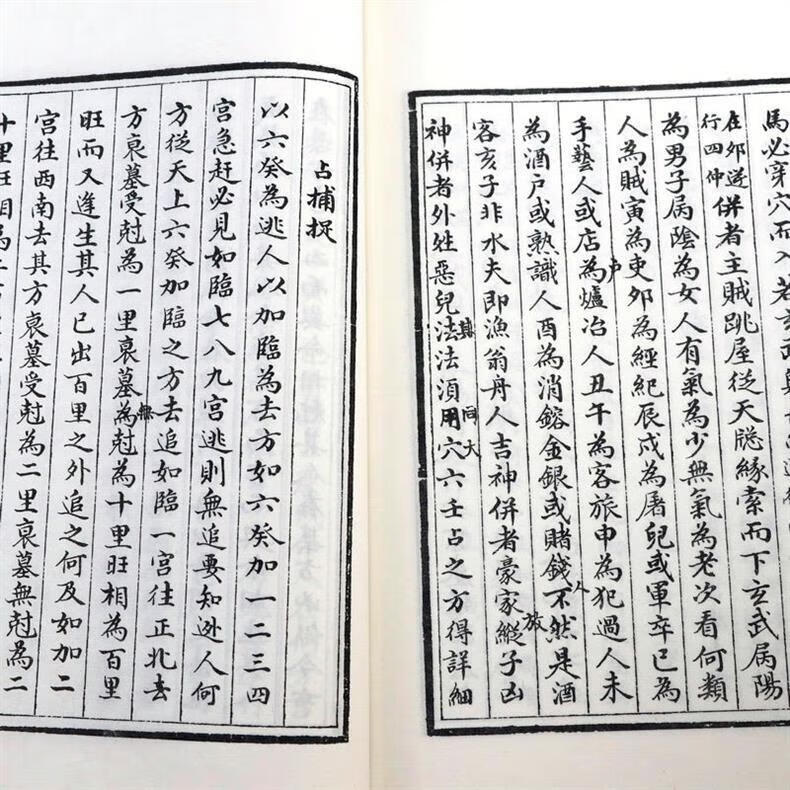 馬必穿穴而入若玄武
行四仲併者主賊跳屋從天牕緣索而下玄武属陽
為男子属陰為女人有氣為少無氣為老次看何類
人為賊寅為吏戶夘為經紀辰戌為屠兒或軍卒巳為
手藝人或店為爐冶人丑午為客旅申為犯過人未
為酒户或熟識人酉為消鎔金銀或賭錢人不然是酒
客亥子非水夫即漁翁舟人吉神併者豪家縱放子凶
神併者外姓惡兒法其法湏用同大穴六壬占之方得詳細
占捕捉
以六癸為逃人以加臨為去方如六癸加一二三四
宫急赶必見如臨七八九宫逃則無追要知逊人何
方從天上六癸加臨之方去追如臨一宫往正北去
方衰墓受尅為一里衰墓為無尅為十里旺相為百里
旺而又逢生其人已出百里之外追之何及如加二
宫往西南去其方衰墓受尅為二里衰墓無尅為二
十里旺相為二